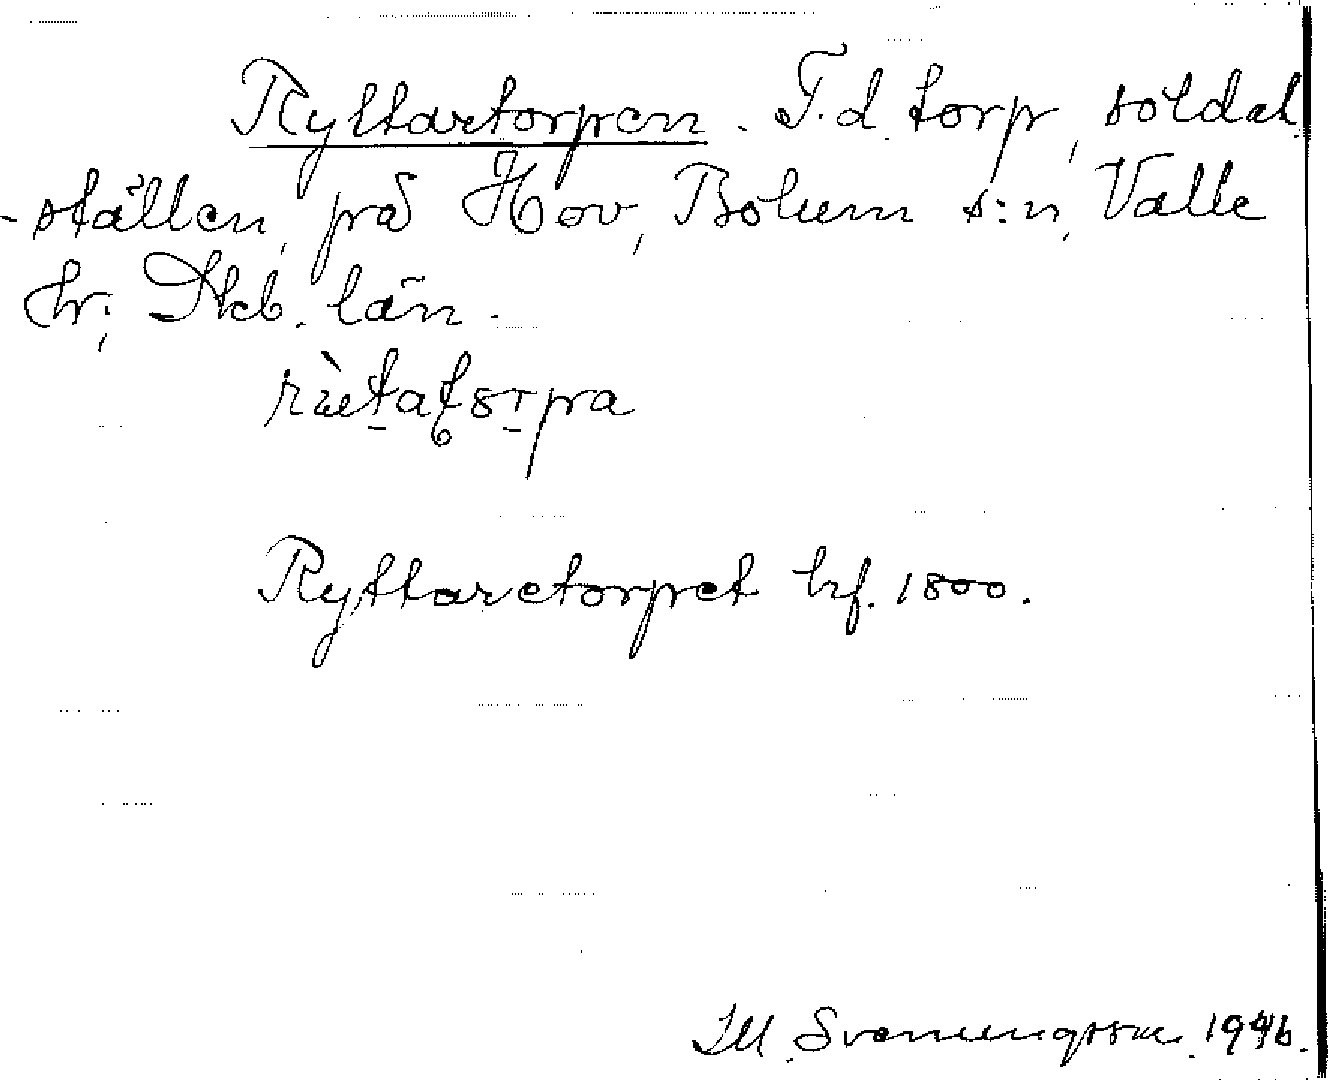 Ryttartorpen. F.d. torp, soldat
-ställen, på Hov, Bolum s:n, Valle
hr, Skb. län.
Ryttaretorpet hf. 1800.
Svenningsson 1946.